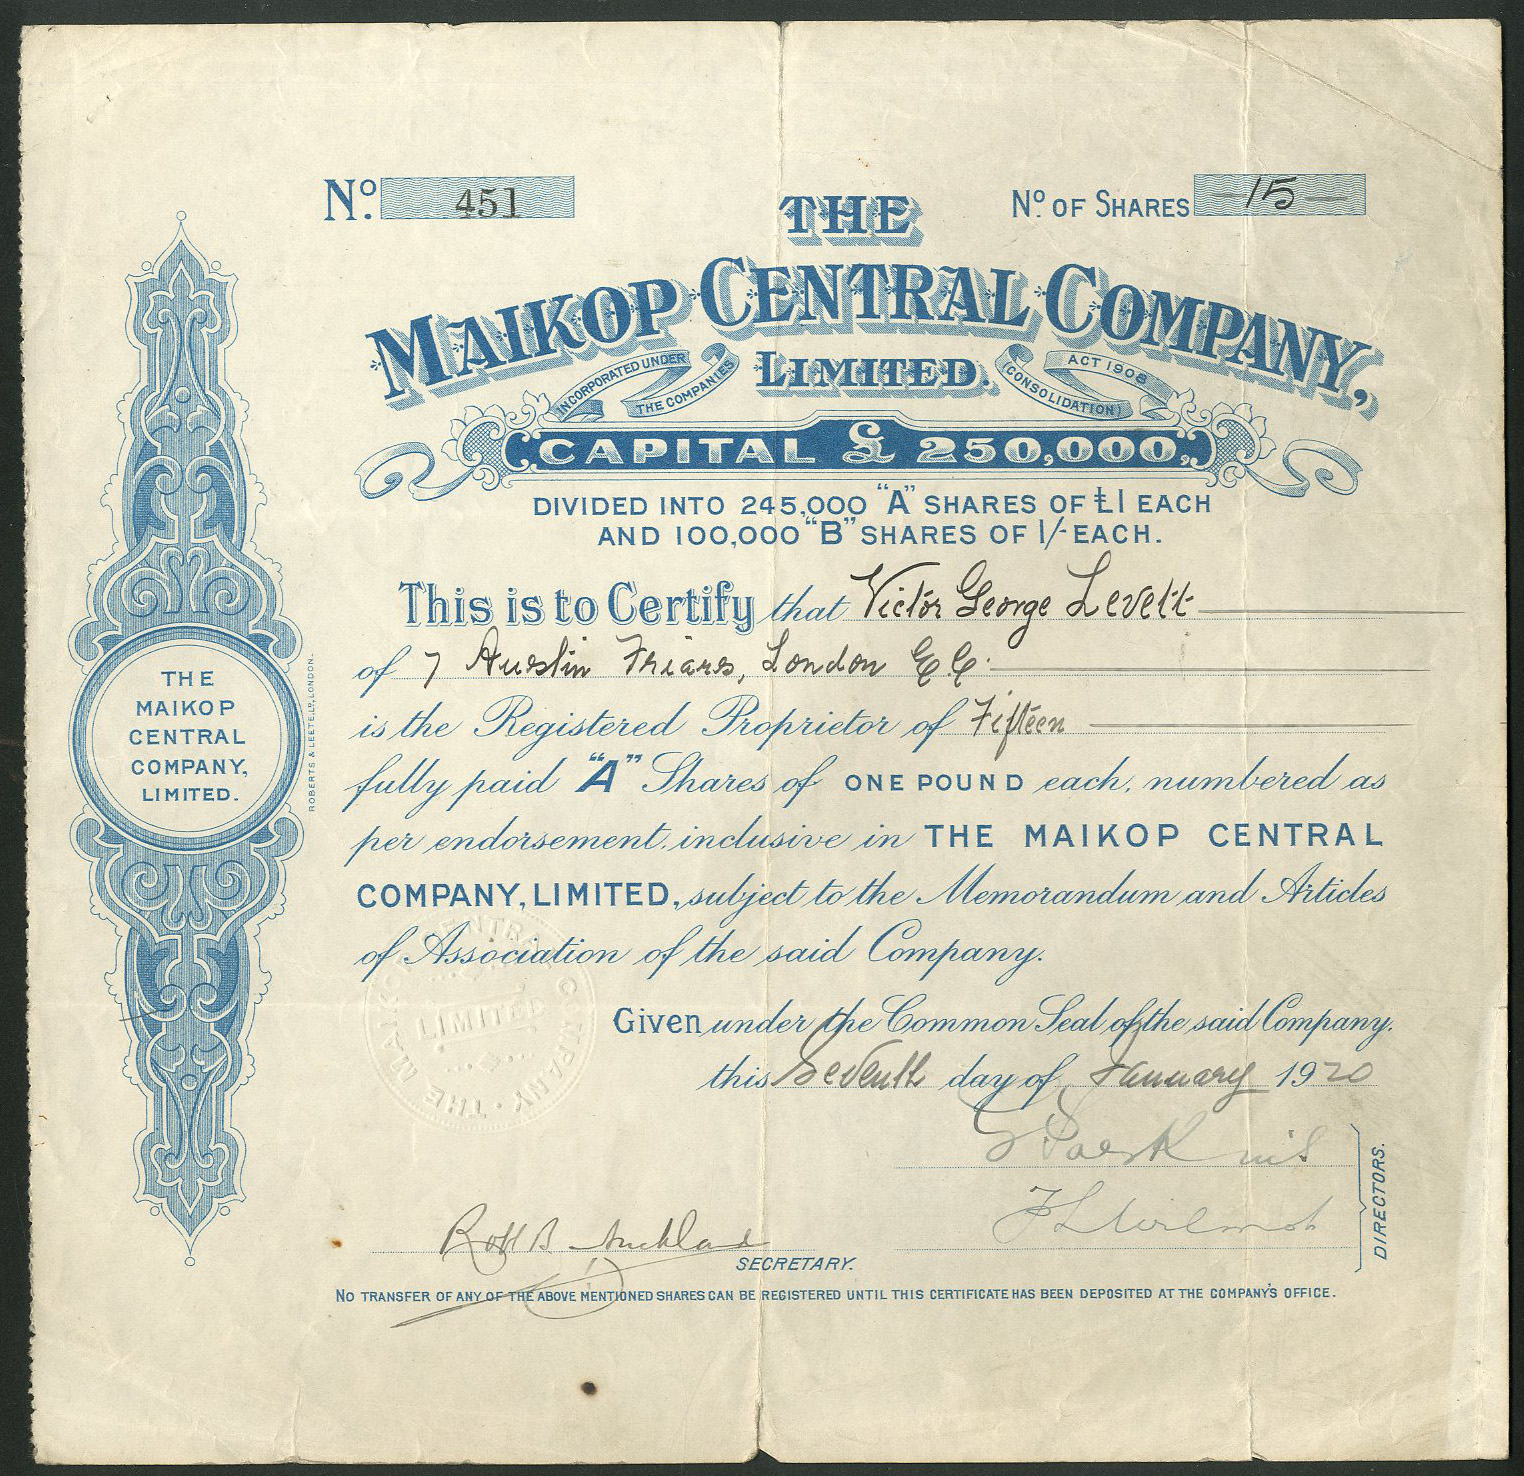 No. 451
No. OF SHARES 15
THE
MAIKOP CENTRAL COMPANY,
LIMITED.
INCORPORATED UNDER THE COMPANIES
(CONSOLIDATION) ACT 1908
CAPITAL £250,000,
DIVIDED INTO 245,000 "A" SHARES OF £1 EACH
AND 100,000 "B" SHARES OF 1/- EACH.
This is to Certify that Victor George Levett
of 7 Austin Friars, London E.C.
is the Registered Proprietor of Fifteen
fully paid "A" Shares of ONE POUND each, numbered as
per endorsement, inclusive in THE MAIKOP CENTRAL
COMPANY, LIMITED, subject to the Memorandum and Articles
of Association of the said Company.
Given under the Common Seal of the said Company,
this Seventh day of January 1920
DIRECTORS.
Auckland
SECRETARY.
NO TRANSFER OF ANY OF THE ABOVE MENTIONED SHARES CAN BE REGISTERED UNTIL THIS CERTIFICATE HAS BEEN DEPOSITED AT THE COMPANY'S OFFICE.
THE
MAIKOP
CENTRAL
COMPANY,
LIMITED.
ROBERTS & LEETE LD. LONDON.
THE MAIKOP CENTRAL COMPANY
LIMITED